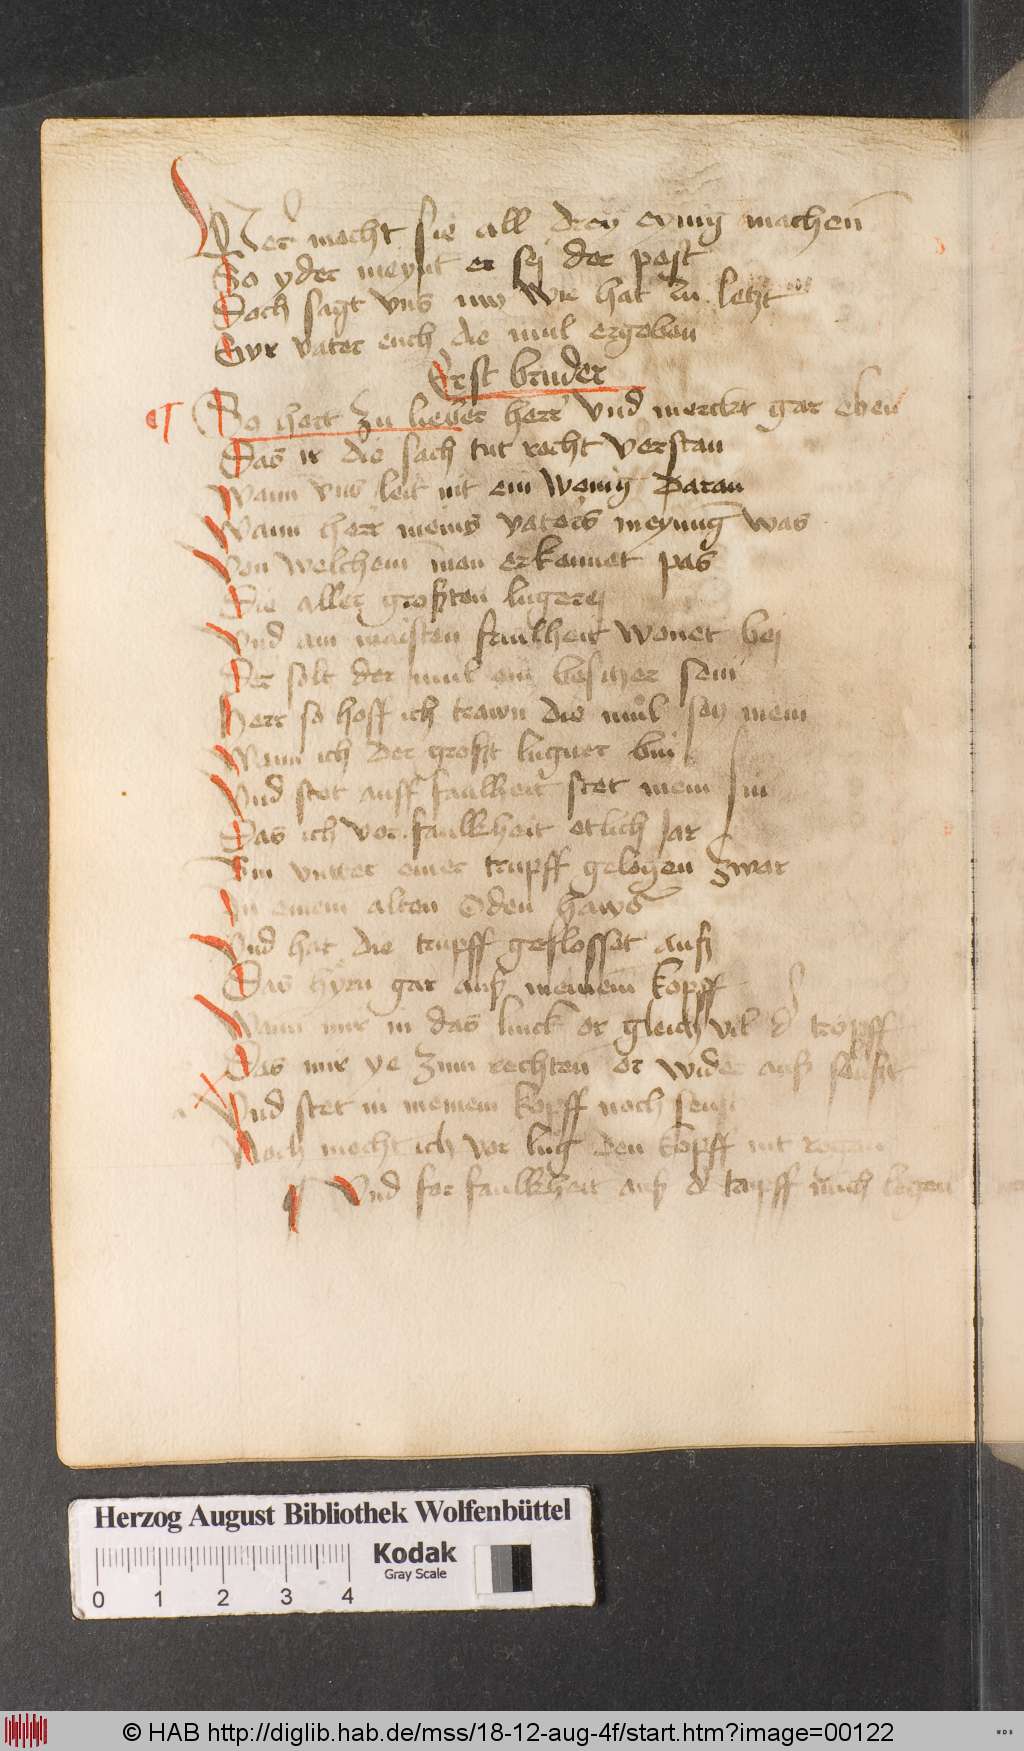 Wer mocht sie all drey eynig machen̄
So yder meynt er sej der pest
Doch sagt vns nw wie hat zu letzt
Ewr vater euch die mul ergeben
Erst bruder
So hort zu lieber herr vnd merckt gar eben
Das ir die sach tut recht verstan
Wann vns leit nit ein wenig daran
Wann herr meins vaters meynung was
Von welchem man erkennet pas
Die aller großten lugerej
Vnd am maisten faulheit wonet bej
Der solt der mul ein besitzer sein
Herr so hoff ich trawn die mul sey mein
Wann ich der großt lugner bin
Vnd stet auff faulheit stet mein sin
Das ich vor faulkheit etlich jar
Bin vnter einer trupff gelegen zwar
In einem alten öden haws
Vnd hat die trupff geflosset auß
Das hyrn gar auß meinem kopff
Wann mir in das linck or gleich vil d tropff
Das mir ye zum rechten or wider auß
Vnd stet in meinem kopff noch
Noch mocht ich vor lug den kopff nit regen
Vnd for faulkheit auß d trupff mich legen
Herzog August Bibliothek Wolfenbüttel
0 1 2 3 4
Kodak
Gray Scale
© HAB http://diglib.hab.de/mss/18-12-aug-4f/start.htm?image=00122